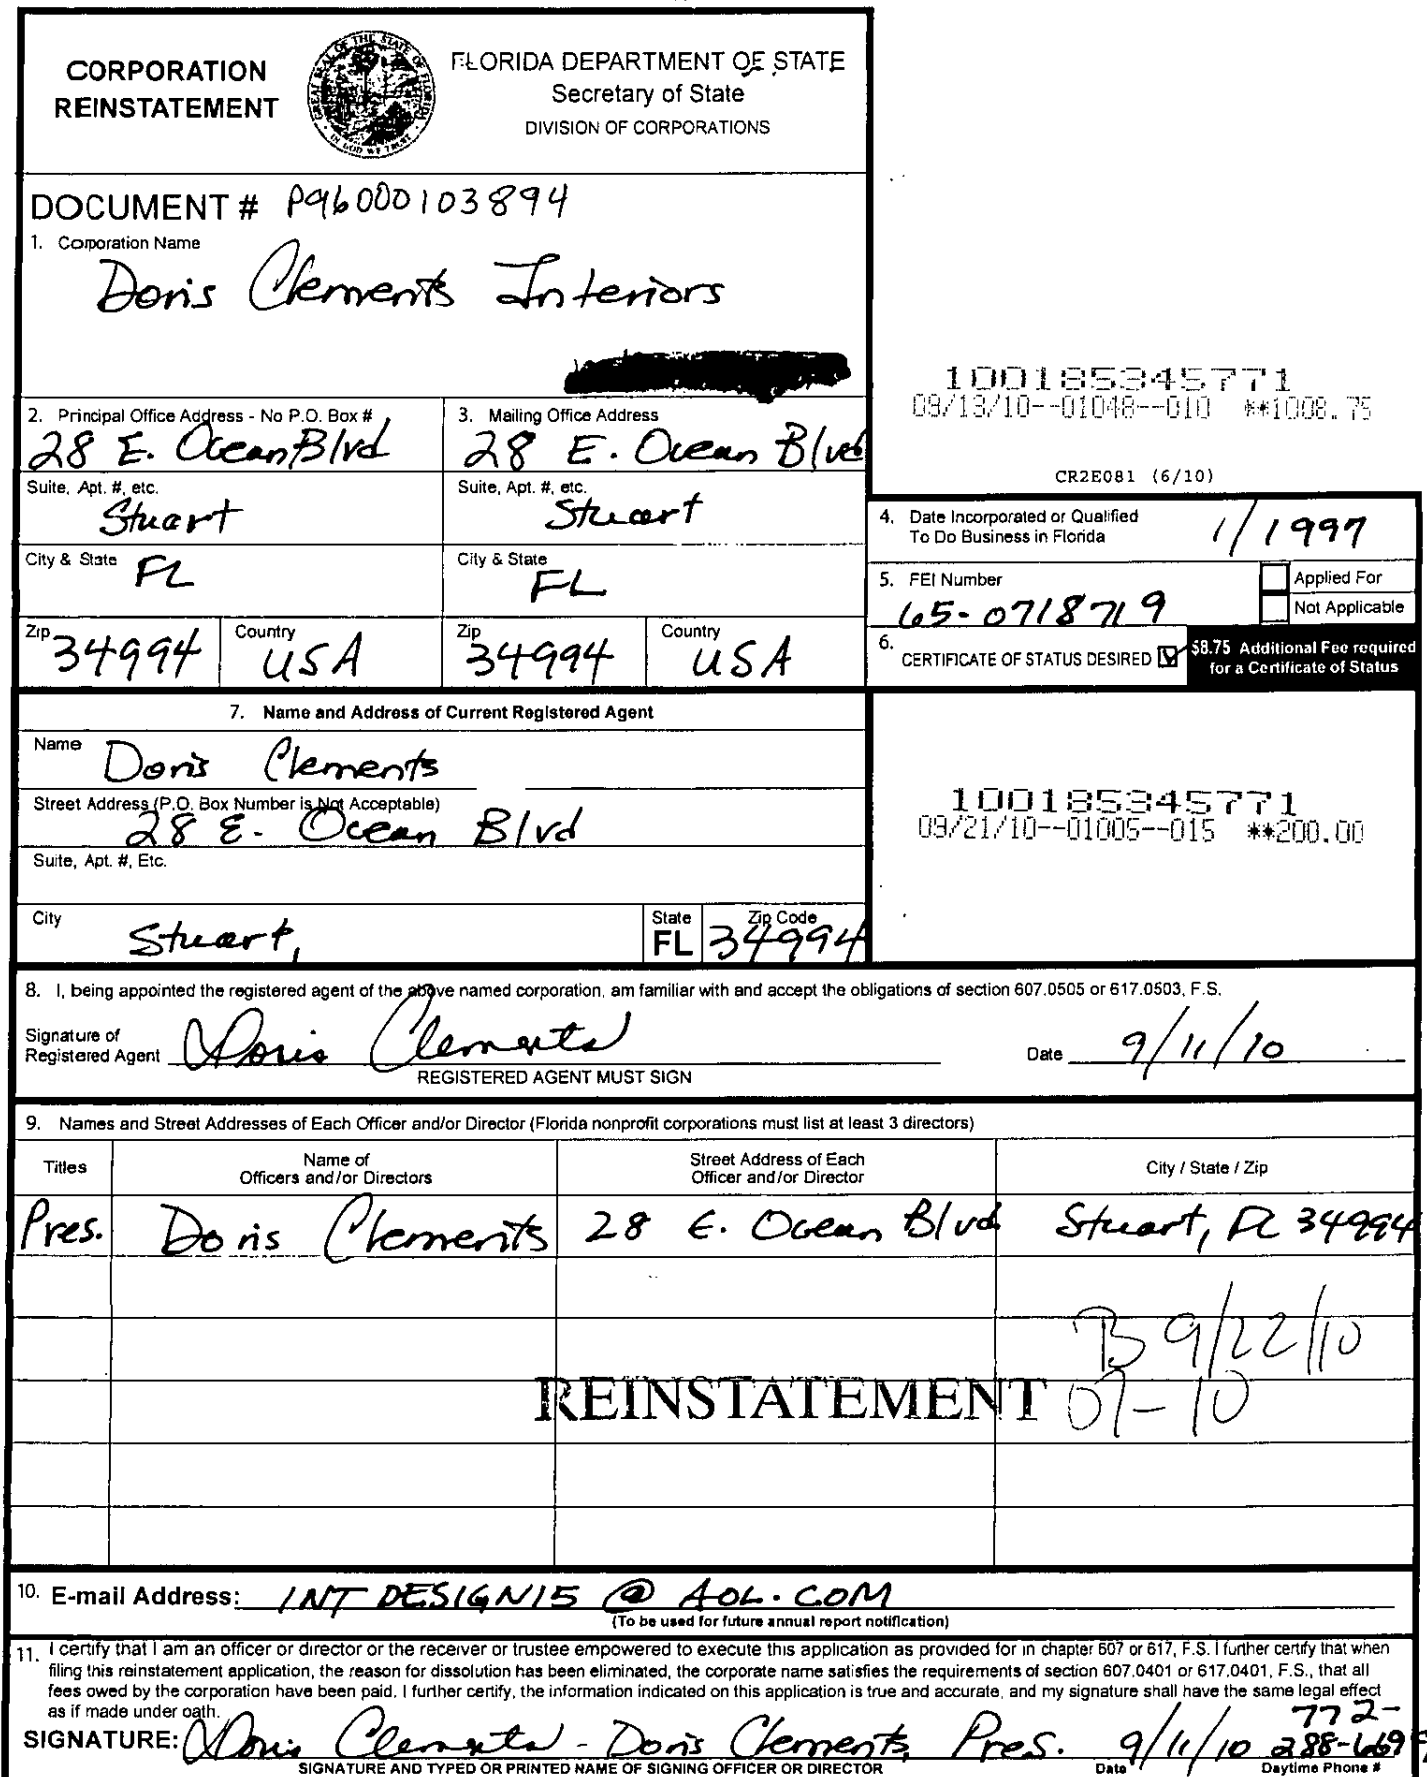 CORPORATION
REINSTATEMENT
FLORIDA DEPARTMENT OF STATE
Secretary of State
DIVISION OF CORPORATIONS
DOCUMENT # P96000103894
1. Corporation Name
Doris Clements Interiors
100185345771
09/13/10--01048--010 **1008.75
CR2E081 (6/10)
2. Principal Office Address - No P.O. Box #
28 E. Ocean Blvd
3. Mailing Office Address
28 E. Ocean Blvd
Suite, Apt. #, etc.
Stuart
Suite, Apt. #, etc.
Stuart
City & State FL
City & State
FL
Zip 34994
Country
USA
Zip
34994
Country
USA
4. Date Incorporated or Qualified
To Do Business in Florida 1/1997
5. FEI Number
65-0718719
Applied For
Not Applicable
6. CERTIFICATE OF STATUS DESIRED
$8.75 Additional Fee required
for a Certificate of Status
7. Name and Address of Current Registered Agent
Name Doris Clements
Street Address (P.O. Box Number is Not Acceptable)
28 E. Ocean Blvd
Suite, Apt. #, Etc.
City Stuart,
State
FL
Zip Code
34994
100185345771
09/21/10--01005--015 **200.00
8. I, being appointed the registered agent of the above named corporation, am familiar with and accept the obligations of section 607.0505 or 617.0503, F.S.
Signature of
Registered Agent Doris Clements Date 9/11/10
REGISTERED AGENT MUST SIGN
9. Names and Street Addresses of Each Officer and/or Director (Florida nonprofit corporations must list at least 3 directors)
Titles
Name of
Officers and/or Directors
Street Address of Each
Officer and/or Director
City / State / Zip
Pres. Doris Clements 28 E. Ocean Blvd Stuart, FL 34994
B 9/22/10
REINSTATEMENT 07-10
10. E-mail Address: INTDESIGN15@AOL.COM
(To be used for future annual report notification)
11. I certify that I am an officer or director or the receiver or trustee empowered to execute this application as provided for in chapter 607 or 617, F.S. I further certify that when
filing this reinstatement application, the reason for dissolution has been eliminated, the corporate name satisfies the requirements of section 607.0401 or 617.0401, F.S., that all
fees owed by the corporation have been paid. I further certify, the information indicated on this application is true and accurate, and my signature shall have the same legal effect
as if made under oath.
SIGNATURE: Doris Clements - Doris Clements, Pres. 9/11/10 772-
288-669
SIGNATURE AND TYPED OR PRINTED NAME OF SIGNING OFFICER OR DIRECTOR Date Daytime Phone #